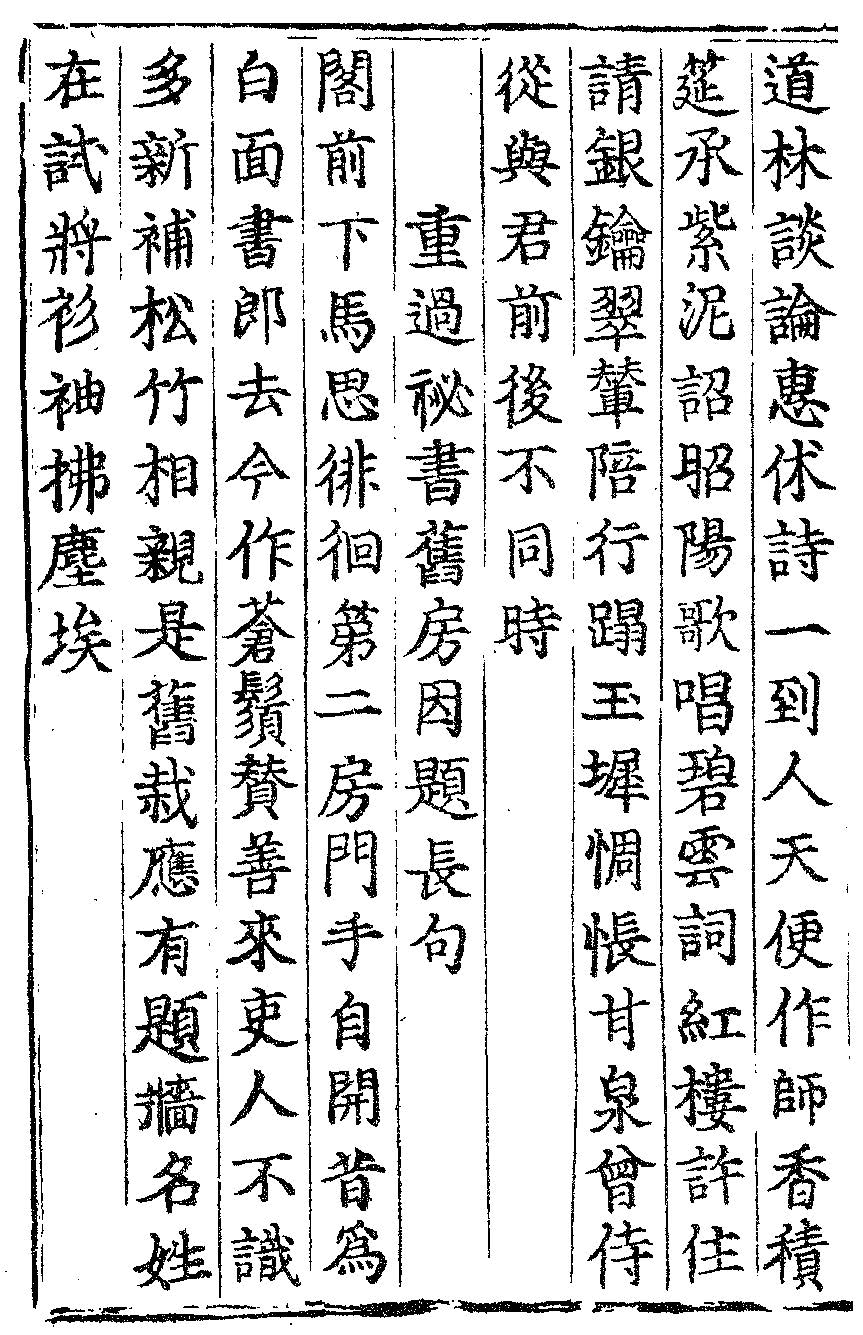 道林談論惠休詩一到人天便作師香積
筵承紫泥詔昭陽歌唱碧雲詞紅樓許住
請銀鑰翠輦陪行蹋玉墀惆悵甘泉曾侍
從與君前後不同時
重過祕書舊房因題長句
閣前下馬思徘徊第二房門手自開昔爲
白面書郎去今作蒼鬚贊善來吏人不識
多新補松竹相親是舊栽應有題牆名姓
在試將衫袖拂塵埃